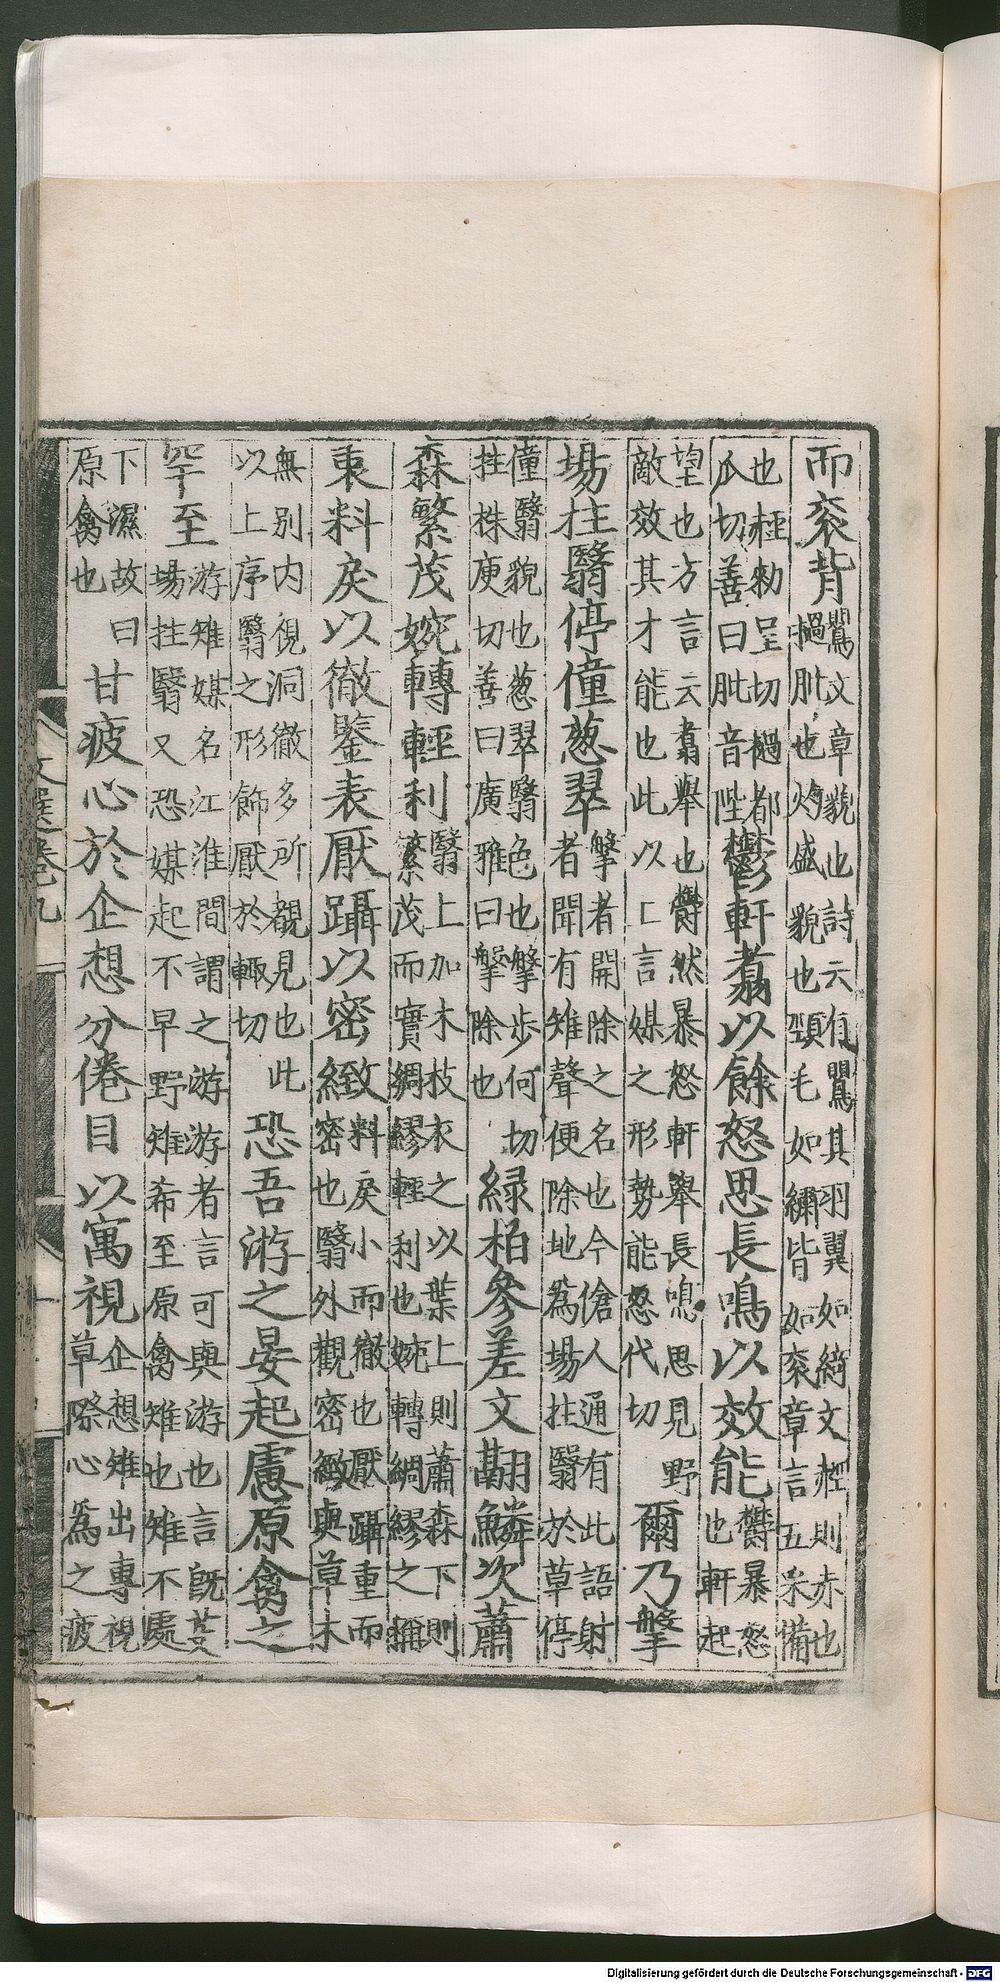 而衮背鸎文章貌也詩云有鸎其羽翼如綺文赬則赤也
檛肶也灼盛貌也頸毛如繡皆如衮章言五采備
也赬勑呈切檛都
瓜切善曰肶音陛鬱軒翥以餘怒思長鳴以效能欝暴怒
也軒起
望也方言云翥舉也欝然暴怒軒舉長鳴思見野
敵效其才能也此以上言媒之形勢能怒代切
爾乃擎
場拄翳停僮葱翠擎者開除之名也今傖人通有此語射
者聞有雉聲便除地為場拄翳於草停
僮翳貌也葱翠翳色也擎步何切
拄株庾切善曰廣雅曰擎除也
緑栢參差文翮鱗次蕭
森繁茂婉轉輕利翳上加木枝衣之以葉上則蕭森下則
繁茂而實綢繆輕利也婉轉綢繆之稱
衷料戾以徹鑒表厭躡以密緻料戾小而徹也厭躡重而
密也翳外觀密緻與草木
無別内視洞徹多所觀見也此
以上序翳之形飾厭於輙切
恐吾游之晏起慮原禽之
罕至游雉媒名江淮間謂之游游者言可與游也言既芟
場拄翳又恐媒起不早野雉希至原禽雉也雉不處
下濕故曰
原禽也
甘疲心於企想分倦目以寓視企想雉出專視
草際心為之疲
文選卷九
Digitalisierung gefördert durch die Deutsche Forschungsgemeinschaft - DFG